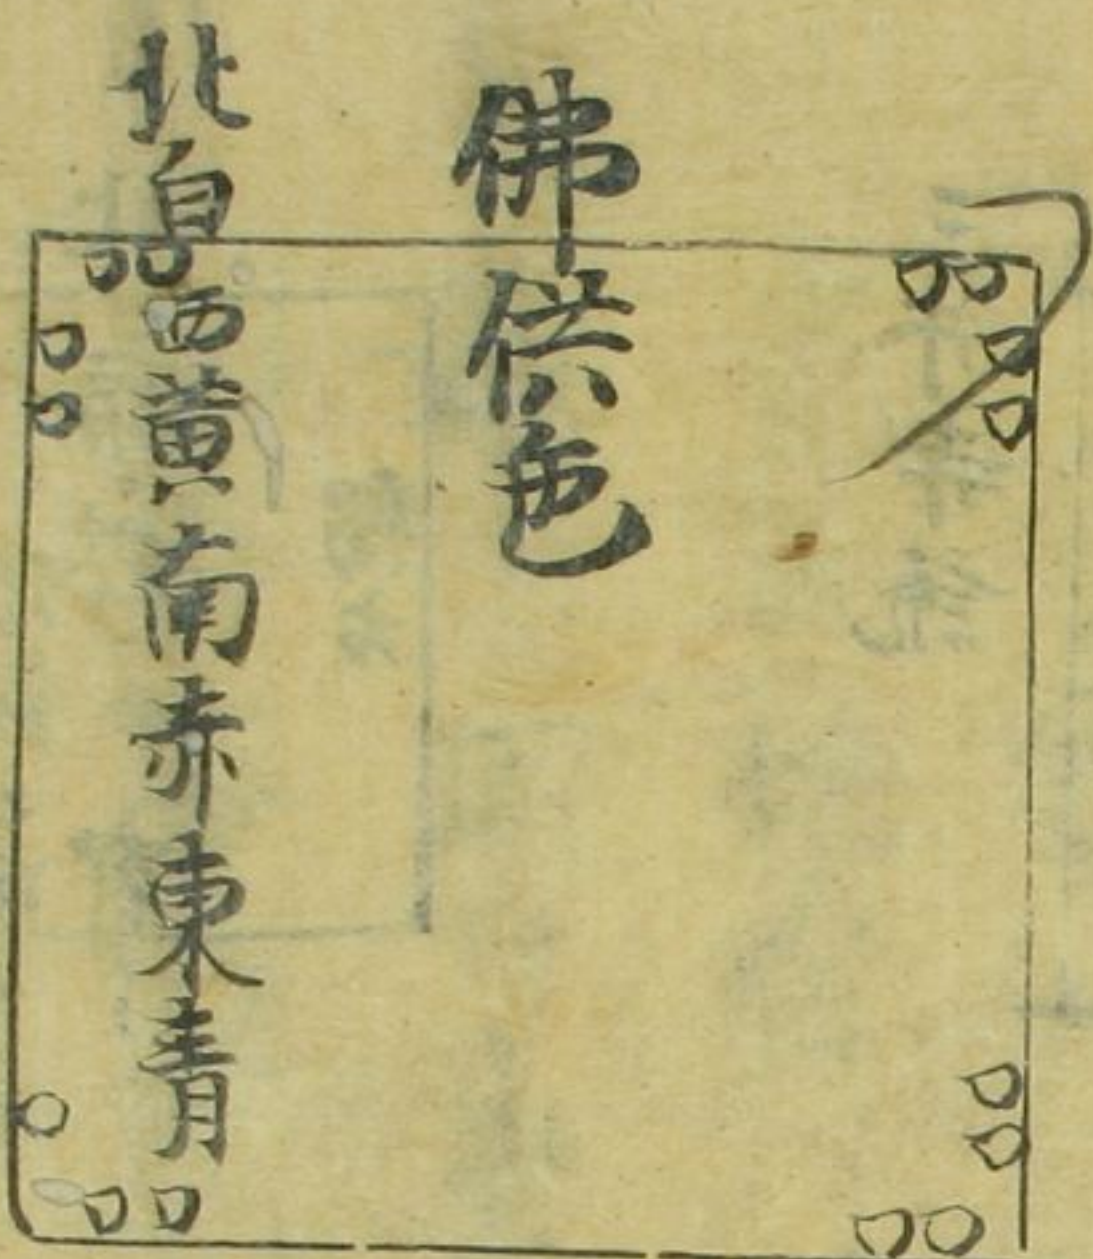 佛供色
北白西黄南赤東青